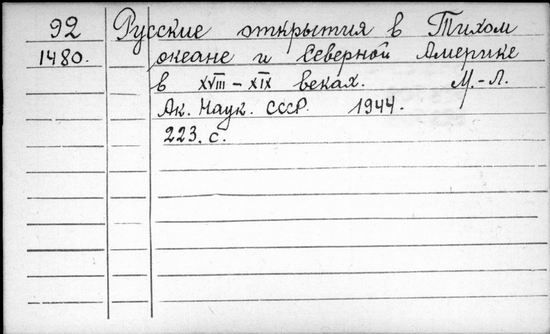 92 Русские открытия в Тихом
1480. океане и Северной Америке
в XVIII – XIX веках. М.-Л.
Ак. Наук. СССР. 1944.
223. с.